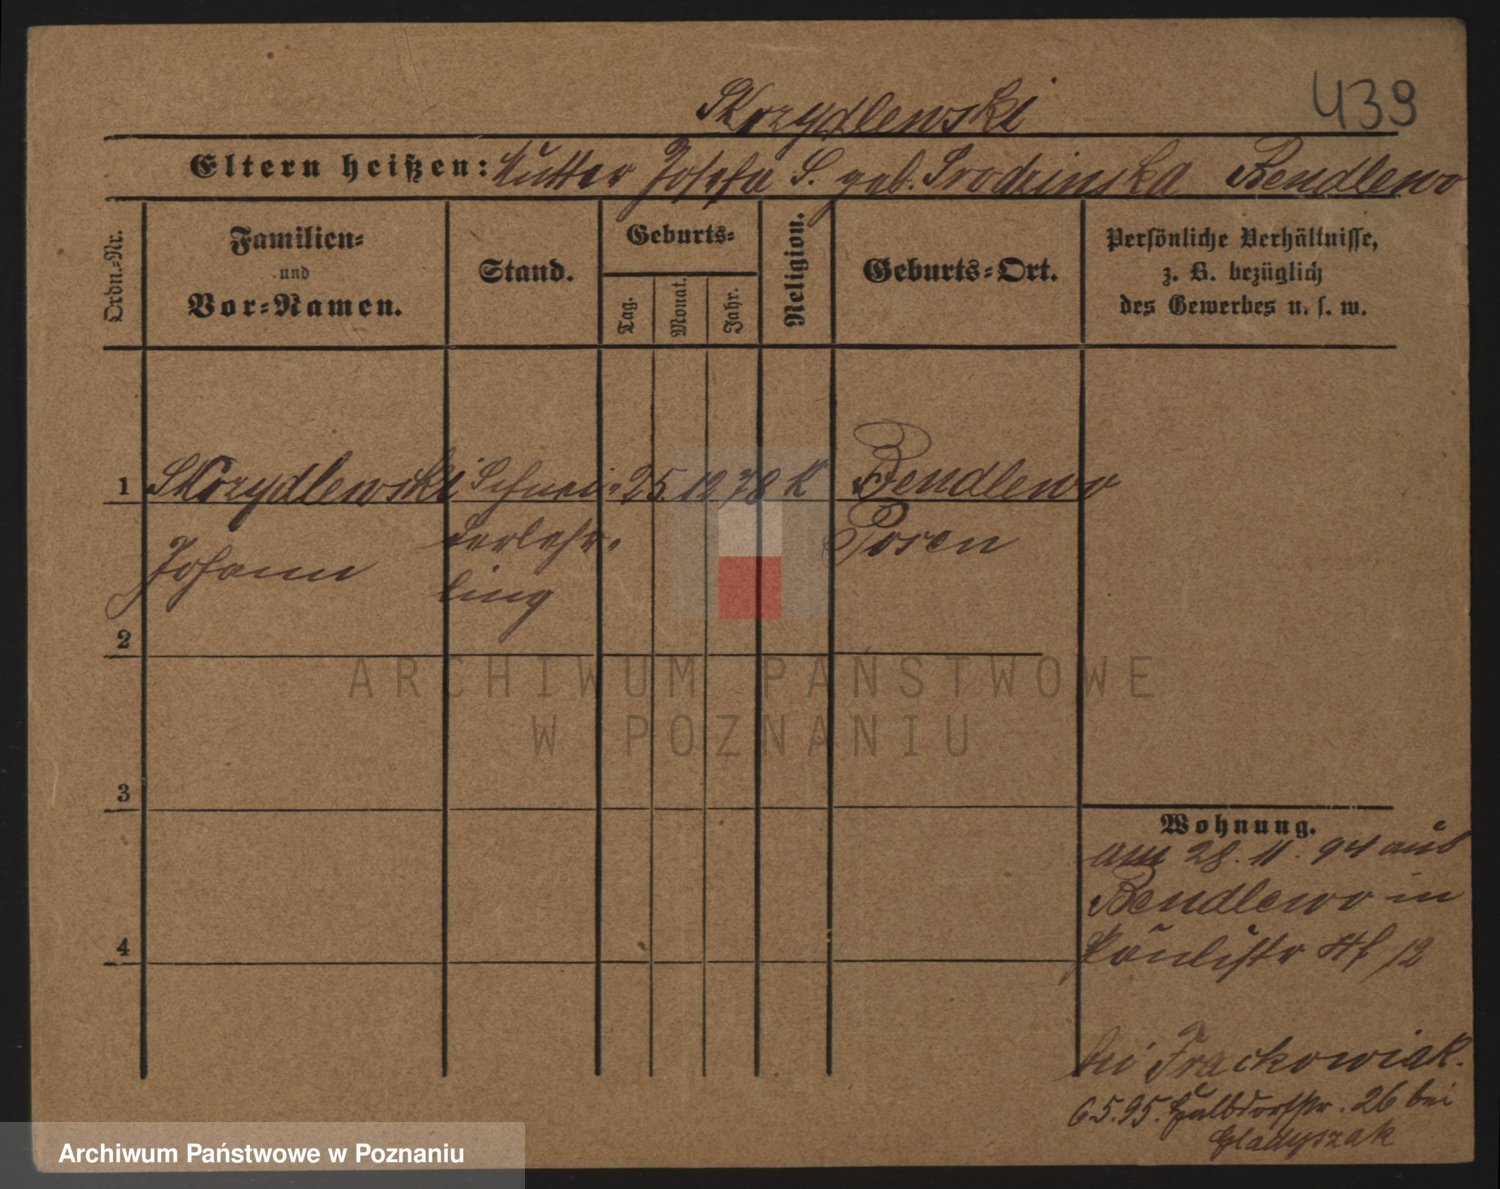 439
Skrzydlewski
Eltern heißen: Mutter Josefa S. geb. Srodzinska Bendlewo
Ordn.-Nr.
Familien-
und
Vor-Namen.
Stand.
Geburts-
Tag.
Monat.
Jahr.
Religion.
Geburts-Ort.
Persönliche Verhältnisse,
z. B. bezüglich
des Gewerbes u. s. w.
1 Skrzydlewski Schnei- 25. 12 78 K Bendlewo
Johann derlehr- Posen
ling
2
3
4
Wohnung.
am 28. 11. 94 aus
Bendlewo in
Paulistr 12
bei Frackowiak.
6.5.95. Halbdorfstr. 26 bei
Gladyszak
ARCHIWUM PAŃSTWOWE
W POZNANIU
Archiwum Państwowe w Poznaniu